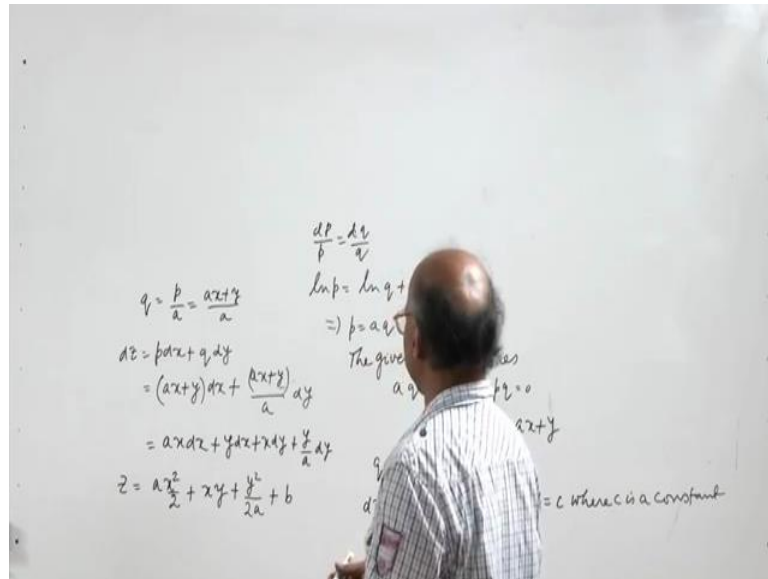 q = p/a = (ax+y)/a
dz = pdx + q dy
= (ax+y)dx + (ax+y)/a dy
= axdx + ydx + xdy + y/a dy
z = a x²/2 + xy + y²/2a + b
dp/p = dq/q
ln p = ln q +
=) p = aq
The give
aq pq = 0
ax+y
q
d = c where c is a constant